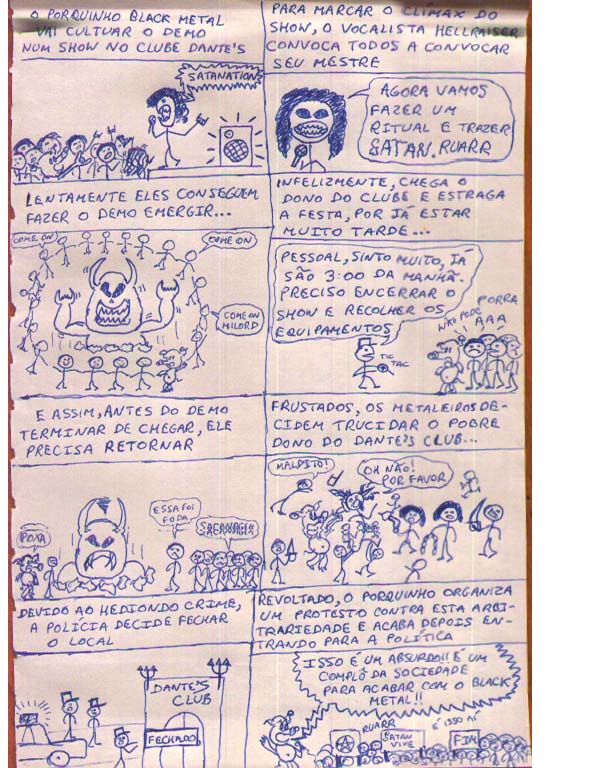 O PORQUINHO BLACK METAL
VAI CULTUAR O DEMO
NUM SHOW NO CLUBE DANTE'S
SATANATION
PARA MARCAR O CLÍMAX DO
SHOW, O VOCALISTA HELLRAISER
CONVOCA TODOS A CONVOCAR
SEU MESTRE
AGORA VAMOS
FAZER UM
RITUAL E TRAZER
SATAN. RUARR
LENTAMENTE ELES CONSEGUEM
FAZER O DEMO EMERGIR...
COME ON
COME ON
COME ON
MILORD
INFELIZMENTE, CHEGA O
DONO DO CLUBE E ESTRAGA
A FESTA, POR JÁ ESTAR
MUITO TARDE...
PESSOAL, SINTO MUITO, JÁ
SÃO 3:00 DA MANHÃ.
PRECISO ENCERRAR O
SHOW E RECOLHER OS
EQUIPAMENTOS
TIC
TAC
NÃO PODE
PORRA
AAA
E ASSIM, ANTES DO DEMO
TERMINAR DE CHEGAR, ELE
PRECISA RETORNAR
POXA
ESSA FOI
FODA
FRUSTADOS, OS METALEIROS DE-
CIDEM TRUCIDAR O POBRE
DONO DO DANTE'S CLUB...
MALDITO!
OH NÃO!
POR FAVOR
DEVIDO AO HEDIONDO CRIME,
A POLÍCIA DECIDE FECHAR
O LOCAL
DANTE'S
CLUB
FECHADO
REVOLTADO, O PORQUINHO ORGANIZA
UM PROTESTO CONTRA ESTA ARBI-
TRARIEDADE E ACABA DEPOIS EN-
TRANDO PARA A POLÍTICA
ISSO É UM ABSURDO!! É UM
COMPLÔ DA SOCIEDADE
PARA ACABAR COM O BLACK
METAL!!
RUARR
SATAN
VIVE
É ISSO AÍ
FIM